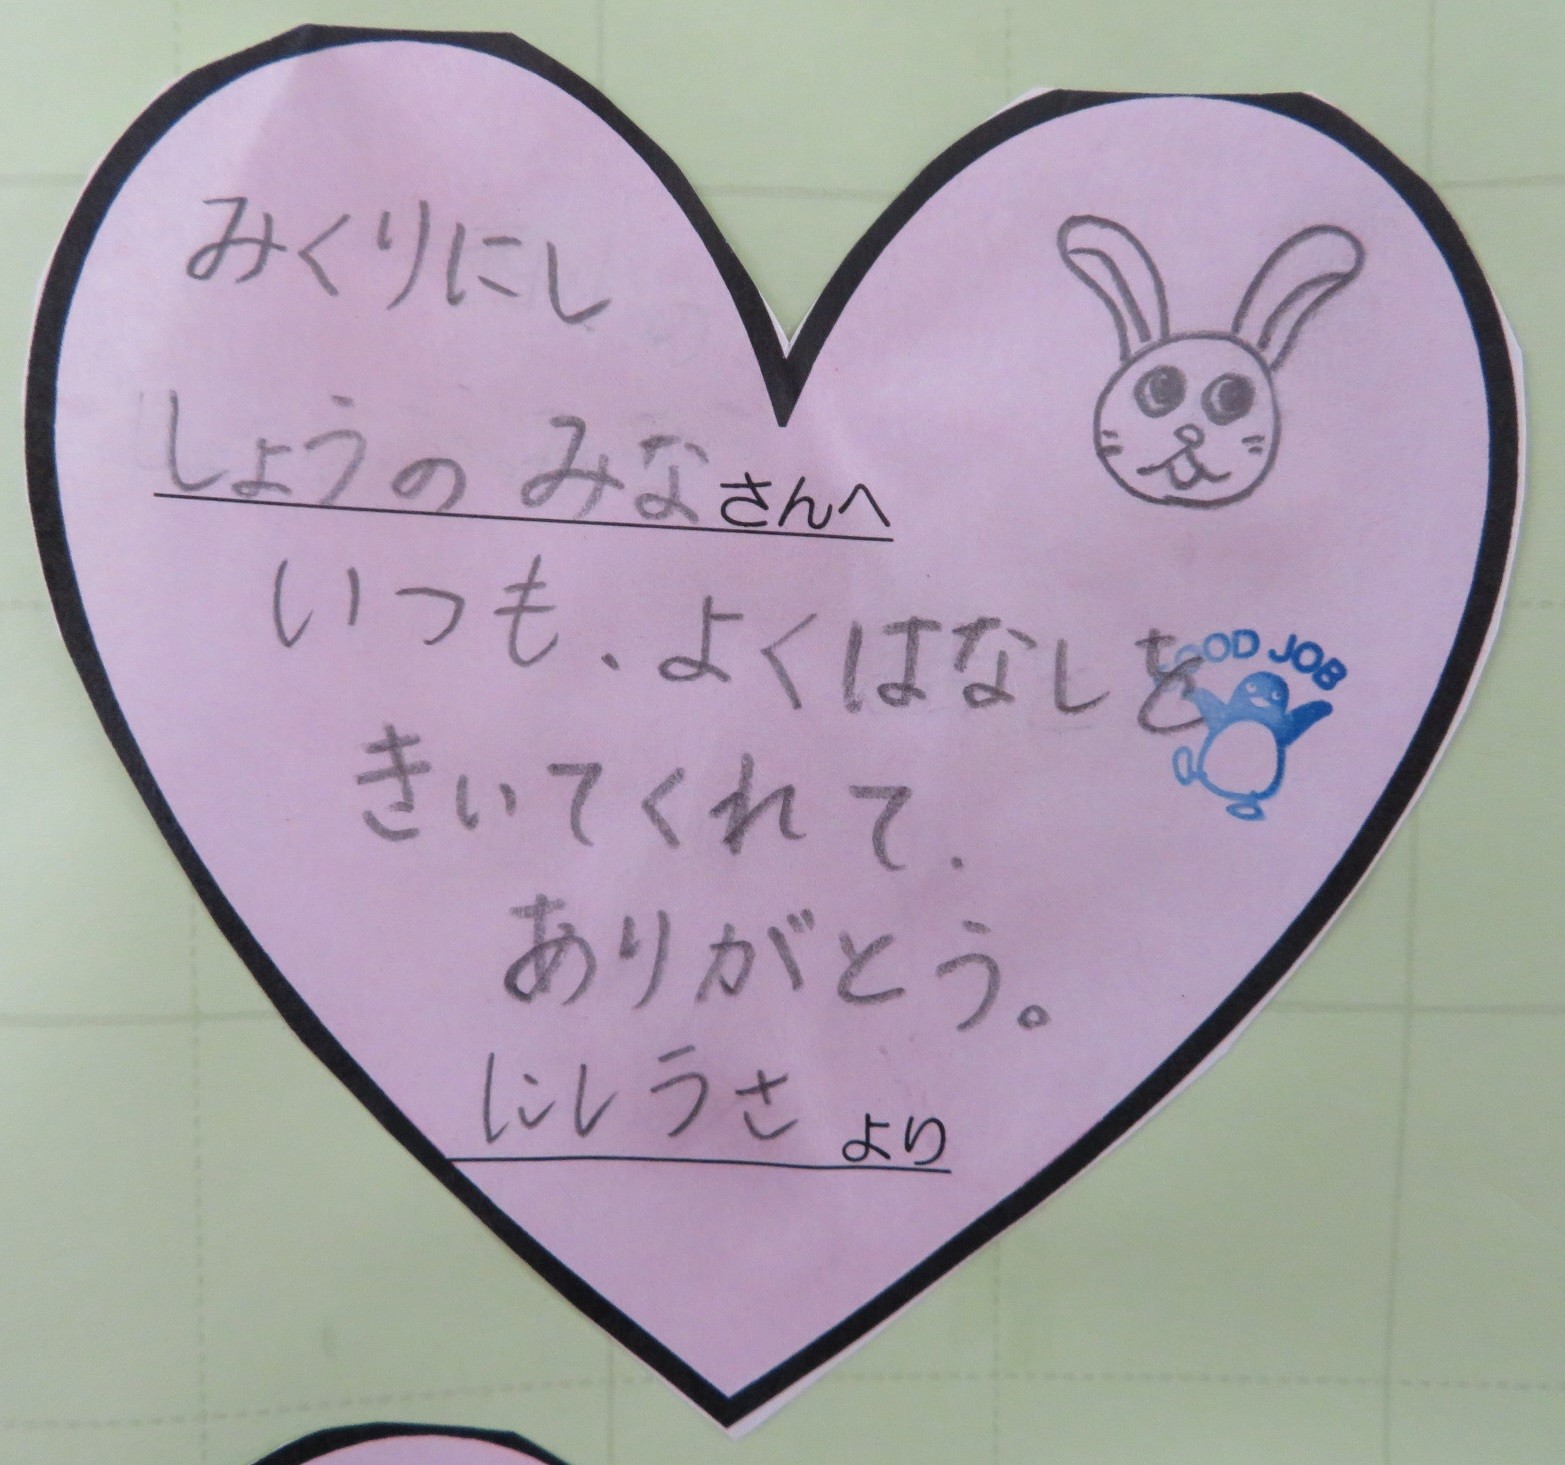 みくりにし
しょうの みなさんへ
いつも、よくはなしを
GOOD JOB
きいてくれて、
ありがとう。
にしうさ より